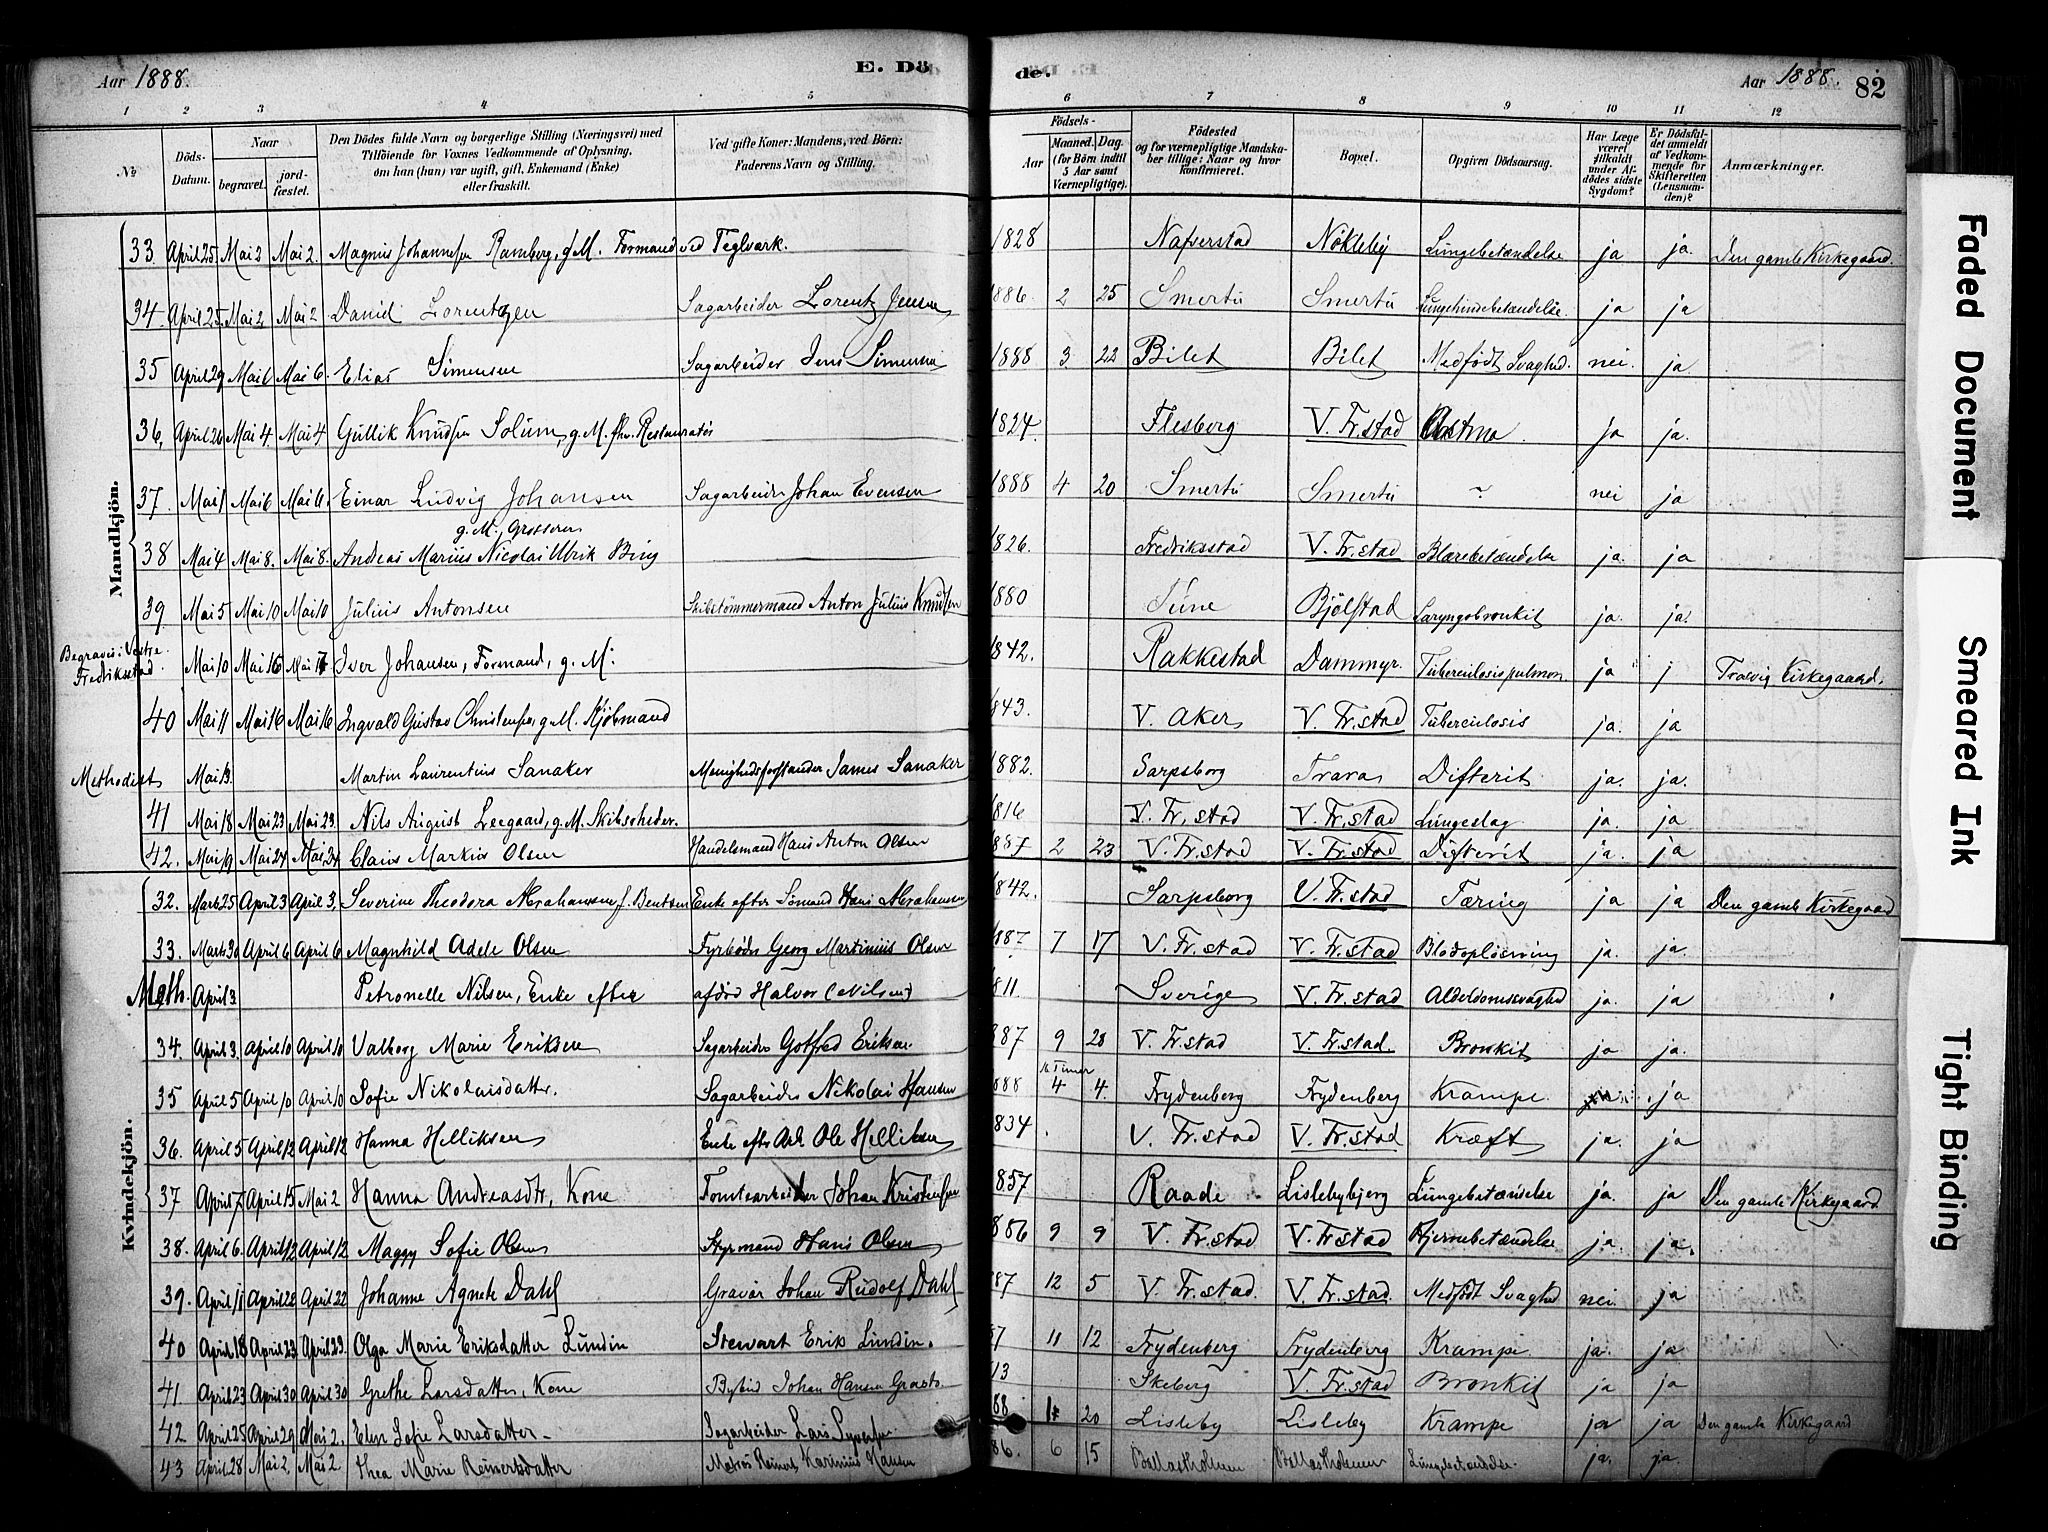 Aar 1888. E. Dö de. Aar 1888. 82
1 2 3 4 5 6 7 8 9 10 11 12
№ Döds-Datum. Naar begravet. jord-fæstet. Den Dödes fulde Navn og borgerlige Stilling (Næringsvei) med Tilföiende for Voxnes Vedkommende af Oplysning, om han (hun) var ugift, gift, Enkemand (Enke) eller fraskilt. Ved gifte Koner: Mandens, ved Börn: Faderens Navn og Stilling. Födsels- Aar Maaned. Dag. (for Börn indtil 5 Aar samt Værnepligtige). Födested og for værnepligtige Mandskaber tillige: Naar og hvor konfirmeret. Bopæl. Opgiven Dödsaarsag. Har Læge været tilkaldt under Afdödes sidste Sygdom? Er Dödsfaldet anmeldt af Vedkommende for Skifteretten (Lensmanden)? Anmærkninger.
Mandkjön.
33. April 25 Mai 2 Mai 2. Magnus Johannesen Ramberg, g.M. Formand ved Teglværk. 1828 Nafverstad Nökleby Lungebetændelse ja ja. Den gamle Kirkegaard.
34. April 25. Mai 2 Mai 2 Daniel Lorentzen Sagarbeider Lorentz Jensen 1886. 2 25 Smertu Smertu Lungehindebetændelse. ja ja
35 April 29 Mai 6 Mai 6. Elias Simensen Sagarbeider Jens Simensen 1888 3. 22 Bilet Bilet Medfödt Svaghed. nei. ja
36, April 26 Mai 4. Mai 4 Gullik Knudsen Solum, g.M. fhv. Restauratör 1824. Flesberg V. Fr.stad Astma ja ja.
37. Mai 1 Mai 6 Mai 6. Einar Ludvig Johansen Sagarbeider Johan Evensen 1888 4 20 Smertu Smertu ~ nei ja
g.M., Grosserer
38 Mai 4 Mai 8. Mai 8. Andreas Marius Nicolai Ulrik Bing 1826. Fredriksstad V. Fr.stad Blærebetændelse ja. ja
39 Mai 5 Mai 10 Mai 10 Julius Antonsen Skibstömmermand Anton Julius Knudsen 1880 Tune Bjölstad Laryngobronkit ja. ja.
Begravet i Vestre Fredriksstad Mai 10 Mai 16 Mai 17 Iver Johansen, Formand, g. M. 1842. Rakkestad Dammyr. Tuberculosis pulmon. ja j Trosvig Kirkegaard.
40 Mai 11 Mai 16 Mai 16 Ingvald Gustav Christensen, g.M. Kjöbmand 1843. V. Aker V. Fr.stad Tuberculosis ja. ja
Methodist Mai 13. Martin Laurentius Sanaker Menighedsforstander James Sanaker 1882. Sarpsborg Trara Difterit ja. ja.
41 Mai 18 Mai 23 Mai 23. Nils August Leegaard, g.M. Skibsrheder. 1816 V. Fr.stad V. Fr.stad Lungeslag ja. ja
42. Mai 19 Mai 24 Mai 24 Claus Markus Olsen Handelsmand Hans Anton Olsen 1887 2 23 V. Fr.stad V. Fr.stad Difterit ja. ja
Kvindekjön.
32. Marts 25 April 3 April 3. Severine Theodora Abrahamsen f. Bentsen Enke efter Sömand Hans Abrahamsen 1842. Sarpsborg V. Fr.stad Tæring ja ja Den gamle Kirkegaard
33. Marts 30 April 6 April 6 Magnhild Adele Olsen Fyrböder Georg Martinius Olsen 887 7 17 V. Fr.stad V. Fr.stad Blodoplösning ja. ja.
Meth. April 3 Petronelle Nilsen, Enke efter afdöd Halvor (Nilsen) 811. Sverige V. Fr.stad Alderdomssvaghed ja. ja
34. April 3. April 10 April 10 Valborg Marie Eriksen Sagarbeider Gotfred Eriksen 887 9 28 V. Fr.stad V. Fr.stad. Bronkit ja ja.
16 Timer
35 April 5 April 10 April 10 Sofie Nikolaisdatter. Sagarbeider Nikolai Hansen 888 4 4. Frydenberg Frydenberg Krampe. ja
36. April 5 April 12 April 12 Hanna Helliksen Enke efter Arb. Ole Helliksen 834 V. Fr.stad V. Fr.stad Kræft ja. ja
37 April 7 April 15 Mai 2 Hanna Andreasdtr, Kone Tomtearbeider Johan Kristensen 857 Raade Lislebybjerg Lungebetændelse ja. ja Den gamle Kirkegaard
38. April 6. April 12 April 12 Maggy Sofie Olsen Styrmand Hans Olsen 886 9 9 V. Fr.stad V. Fr.stad Hjernebetændelse ja. ja.
39. April 11 April 22 April 22 Johanne Agnete Dahl Gravör Johan Rudolf Dahl 87 12 5 V. Fr.stad. V. Fr.stad. Medfödt Svaghed nei. ja
40 April 18 April 23 April 23. Olga Marie Eriksdatter Lundin Stewart Erik Lundin. 87 11 12 Frydenberg Frydenberg Krampe. ja. ja
41 April 23 April 30 April 30 Grethe Larsdatter, Kone Bybud Johan Hansen 13 Skeberg V. Fr.stad Bronkit ja ja
42 April 25 April 29 Mai 2. Elen Sofie Larsdatter Sagarbeider Lars Syversen 88 20 Lisleby Lisleby Krampe ja ja Den gamle Kirkegaard
43 April 28 Mai 2 Mai 2 Thea Marie Reinertsdatter Matros Reinert Karinius Hansen 86. 6 15 Ballastholmen Ballastholmen Lungebetændelse. ja. ja.
Faded Document
Smeared Ink
Tight Binding